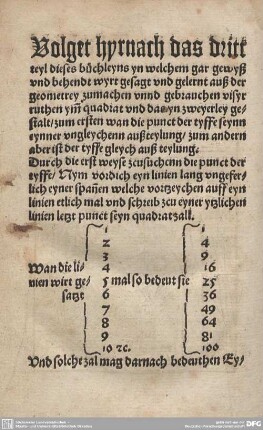 Volget hyrnach das dritt
teyl dieses büchleyns yn welchem gar gewyß
vnd behende wyrt gesagt vnd gelernt auß der
geometrey zumachen vnnd gebrauchen visyr
ruthen ynn quadrat vnd das yn zweyerley ge-
stalt/zum ersten wan die punct der tyffe seynn
eynner vngleychenn außteylung/zum andern
aber ist der tyffe gleych auß teylung.
Durch die erst weyse zeusuchenn die punct der
tyffe/Nym vordich eyn linien lang vngefer-
lich eyner spañen welche vortzeychen auff eyn
linien etlich mal vnd schreib zcu eyner ytzlichen
linien letzt punct seyn quadratzall.
1 1
2 4
3 9
Wan die li- 4 16
nien wirt ge- 5 mal so bedeut sie 25
satzt 6 36
7 49
8 64
9 81
10 ⁊c. 100
Vnd solche zal mag darnach bedeuthen Ey-